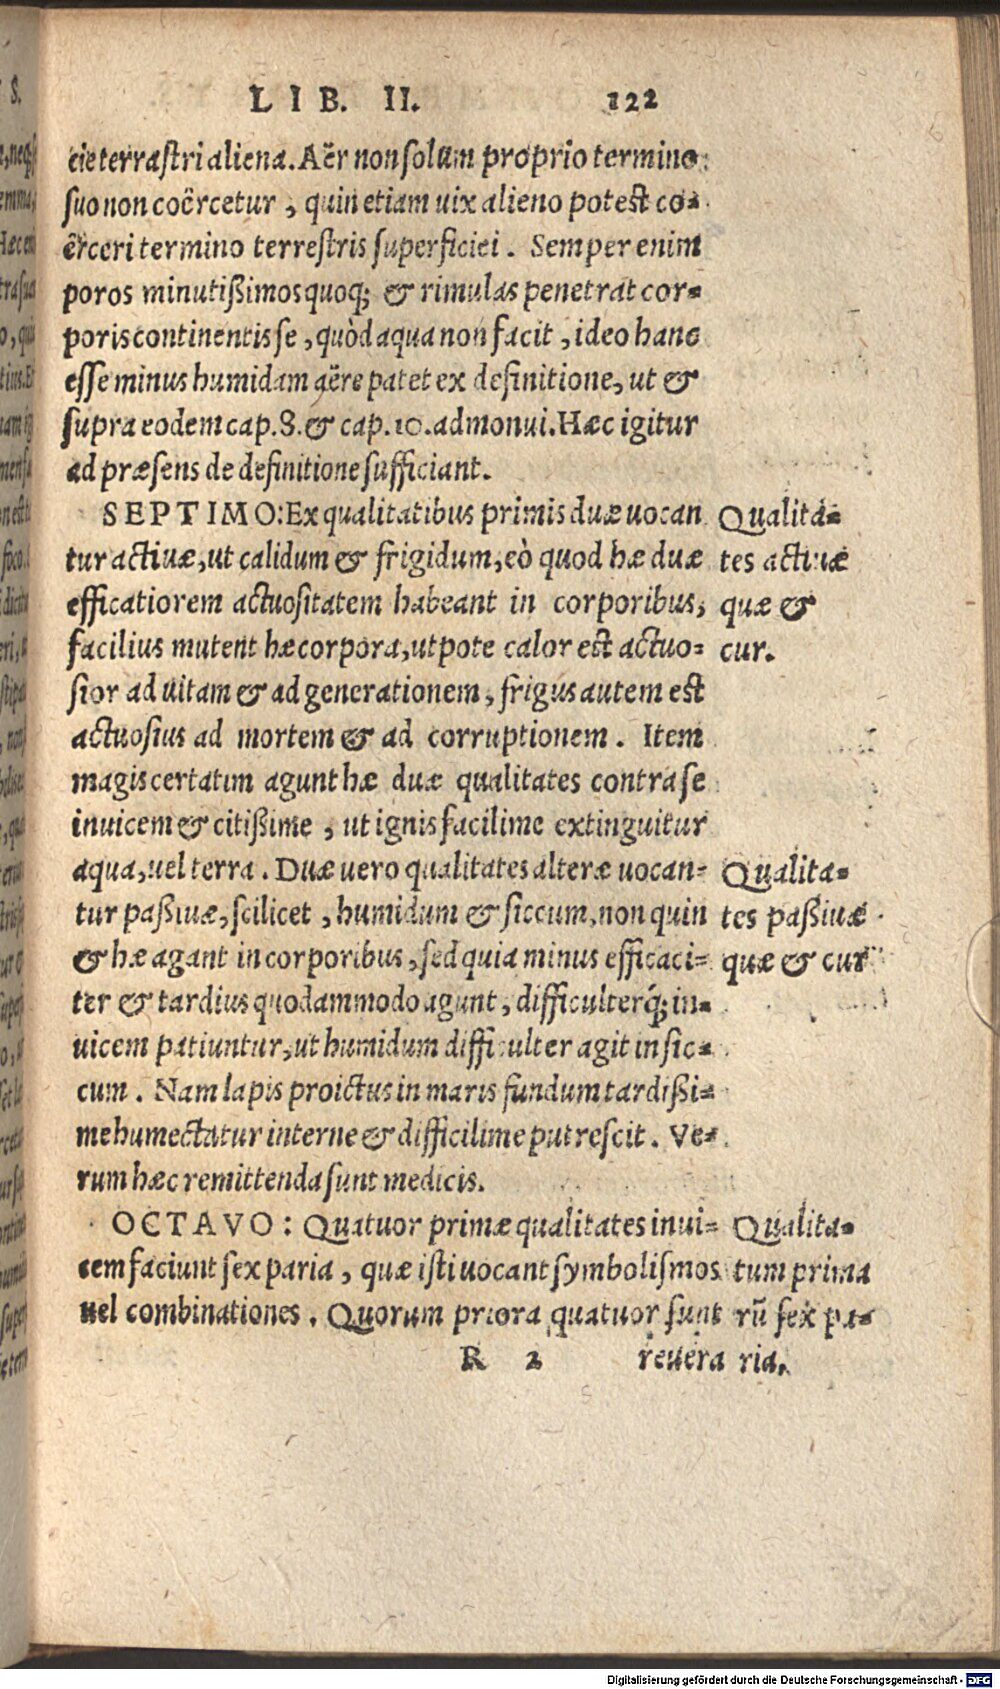 LIB. II. 122
cie terrastri aliena. Aër non solum proprio termino
suo non coërcetur, quin etiam uix alieno potest co-
ërceri termino terrestris superficiei. Semper enim
poros minutißimos quoq; & rimulas penetrat cor-
poris continentis se, quòd aqua non facit, ideo hanc
esse minus humidam aëre patet ex definitione, ut &
supra eodem cap. 8. & cap. 10. admonui. Hæc igitur
ad præsens de definitione sufficiant.
SEPTIMO: Ex qualitatibus primis duæ uocan
tur actiuæ, ut calidum & frigidum, eò quod hæ duæ
efficatiorem actuositatem habeant in corporibus,
facilius mutent hæ corpora, utpote calor est actuo-
sior ad uitam & ad generationem, frigus autem est
actuosius ad mortem & ad corruptionem. Item
magis certatim agunt hæ duæ qualitates contra se
inuicem & citißime, ut ignis facilime extinguitur
aqua, uel terra. Duæ uero qualitates alteræ uocan-
tur paßiuæ, scilicet, humidum & siccum, non quin
& hæ agant in corporibus, sed quia minus efficaci-
ter & tardius quodammodo agunt, difficulterq́; in-
uicem patiuntur, ut humidum difficulter agit in sic-
cum. Nam lapis proictus in maris fundum tardißi-
me humectatur interne & difficilime putrescit. Ve-
rum hæc remittenda sunt medicis.
OCTAVO: Quatuor primæ qualitates inui-
cem faciunt sex paria, quæ isti uocant symbolismos
uel combinationes. Quorum priora quatuor sunt
R 2 reuera
Qualita-
tes actiuæ
quæ &
cur.
Qualita-
tes paßiuæ
quæ & cur
Qualita-
tum prima
rū sex pa-
ria.
Digitalisierung gefördert durch die Deutsche Forschungsgemeinschaft - DFG